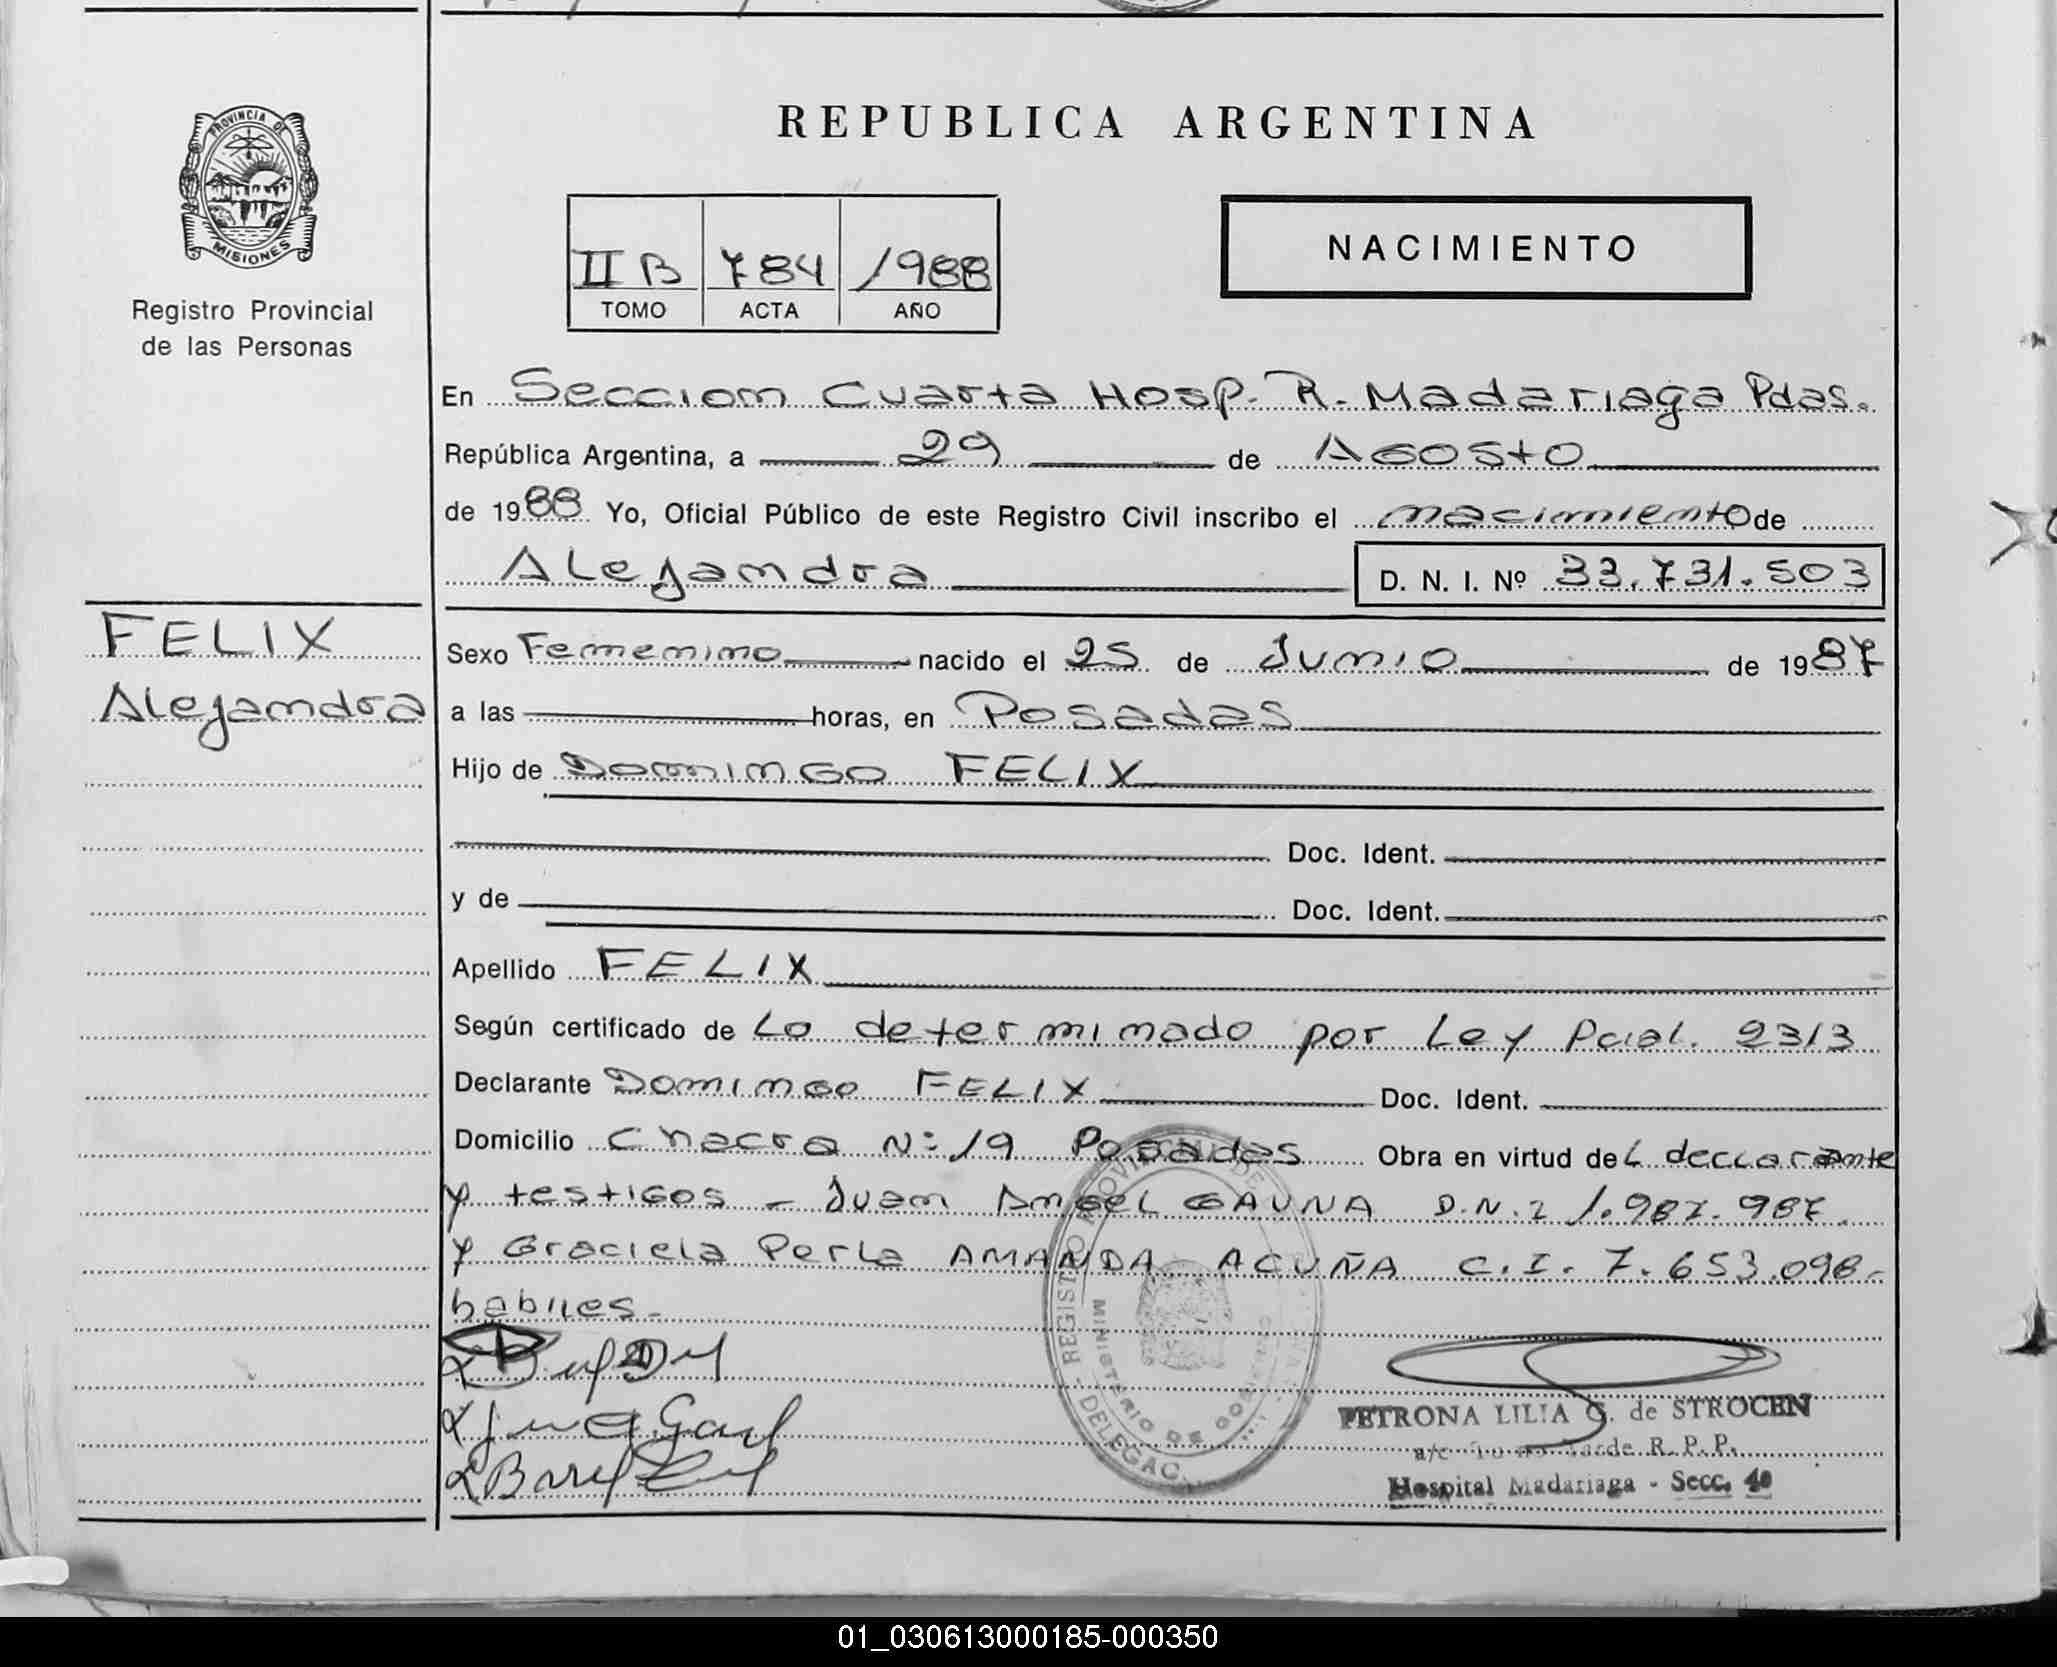 PROVINCIA DE
MISIONES
Registro Provincial
de las Personas
REPUBLICA ARGENTINA
NACIMIENTO
II B 784 1988
TOMO ACTA AÑO
En Seccion Cuarta Hosp. R. Madariaga Pdas.
República Argentina, a 29 de Agosto
de 1988 Yo, Oficial Público de este Registro Civil inscribo el nacimiento de
Alejandra D. N. I. Nº 33.731.503
FELIX
Alejandra
Sexo Femenino nacido el 25 de Junio de 1987
a las horas, en Posadas
Hijo de Domingo FELIX
Doc. Ident.
y de Doc. Ident.
Apellido FELIX
Según certificado de Lo determinado por Ley Pcial. 2313
Declarante Domingo FELIX Doc. Ident.
Domicilio Chacra Nº 19 Posadas Obra en virtud del declarante
y testigos - Juan Angel GAUNA D.N.I 1.987.987
y Graciela Perla AMANDA ACUÑA C.I. 7.653.098-
habiles.-
REGISTRO PROVINCIAL DE
MINISTERIO DE GOBIERNO
DELEGAC
PETRONA LILIA G. de STROCEN
a/c Tarde R. P. P.
Hospital Madariaga - Secc. 4a
01_030613000185-000350